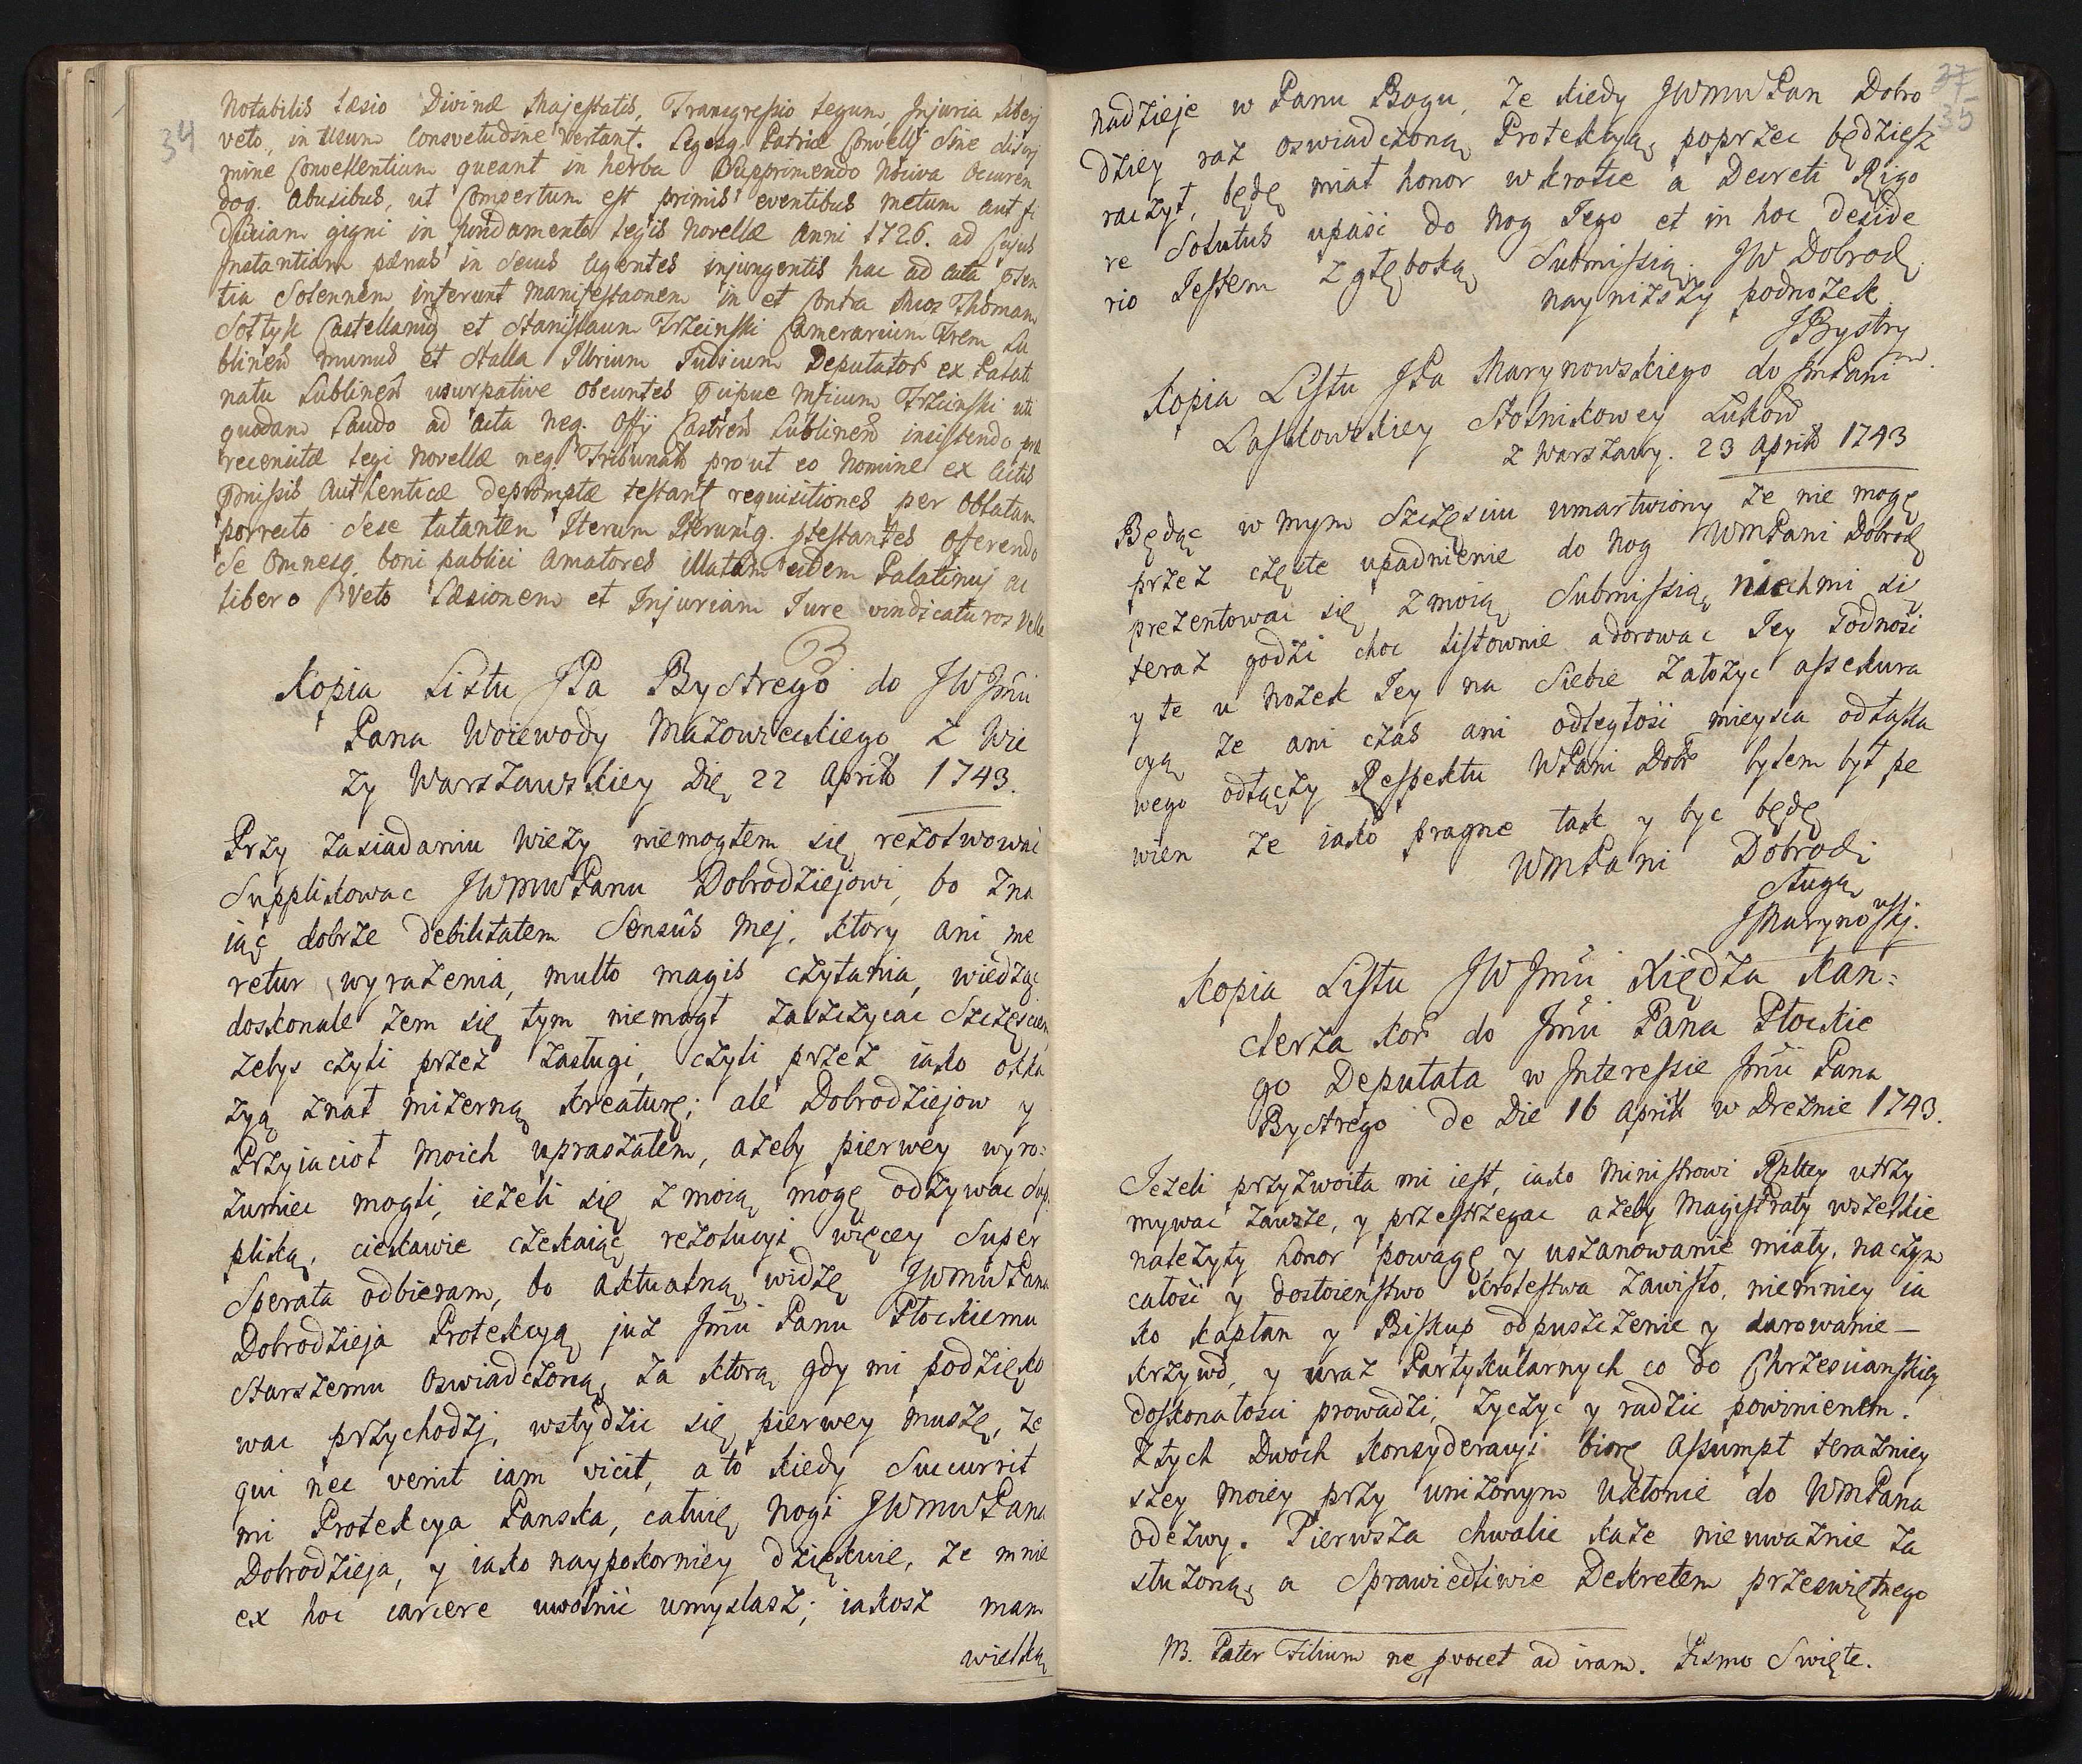 34
Notabilis Læsio Divinæ Majestatis, Transgressio Legum, Injuria liberi
veto, in Usum Consvetudine vertant. Legesq. Patriæ Convelli sine discri
mine Convellentium queant in herba Supprimendo Nociva Occuren
doq. Abusibus, ut Compertum est primis eventibus metum aut fi
duciam gigni in fundamento Legis Novellæ Anni 1726. ad Cujus
Instantiam pænas in secus agentes injungentis hac ad acta
tia Solennem inferunt Manifestaonem in et Contra Thomam
Sołtyk Castellanid et Stanislaum Trzcinski Camerarium Lu
blineñ munus et Stalla Illrium Iudicum Deputator ex Palati
natu Lublineñ usurpative Obeuntes Trzcinski uti
quodam Laudo ad acta neg. Offij Castreñ Lublineñ insistendo
recenutæ legi Novellæ neg. Tribunal prout eo Nomine ex Actis
pmissis Authenticæ depromptæ testant requisitiones per Oblatam
porrecto sese tutanten Iterum Iterumq. ptestantes offerendo
se Omnesq. boni publici Amatores illatam eidem Palatinui ac
libero Veto Læsionem et Injuriam Iure vindicaturos velle
Kopia Listu JPa Bystrego do JW Jmci
Pana Woiewody Mazowieckiego z Wie
zy Warszawskiey Die 22 Aprilis 1743.
Przy zasiadaniu Wiezy niemogłem się rezolwować
Supplikowac JWMWPanu Dobrodziejowi, bo zna
iąc dobrze debilitatem Sensûs Mej, ktory ani me
retur wyrażenia, multo magis czytania, wiedząc
doskonale zem się tym niemogł zaszczycac Szczęsciem
zebys czyli przez zasługi, czyli przez iako okka
zyą znał mizerną kreaturę; ale Dobrodziejow y
Przyiacioł Moich upraszałem, azeby pierwey wyro=
zumiec mogli, iezeli się z moią mogę odzywac Sup
pliką, ciekawie czekaiąc rezolucyi więcey Super
Sperata odbieram, bo aktualną widzę JWMWPana
Dobrodzieja Protekcyą juz Jmci Panu Płockiemu
Starszemu Oswiadczoną, za ktorą gdy mi podzięko
wac przychodzj, wstydzic się pierwey muszę, ze
qui nec venit iam vicit, a to kiedy Succurrit
mi Protekcya Panska, całuię Nogi JWMWPana
Dobrodzieja, y iako naypokorniey dziękuię, ze mnie
ex hoc carcere uwolnić umyslasz; iakosz mam
wielką
37
35
Nadzieje w Panu Bogu, Ze kiedy JWMWPan Dobro
dziey raz oswiadczoną Protekcyą poprzec będziesz
raczył, będę miał honor w krotce a Decreti Rigo
re Solutus upaść do Nog Iego et in hoc deside
rio Iestem z głęboką Submissią. JW Dobrodz
nayniższy podnozek
JBystry
Kopia Listu JPa Marynowskiego do JmPani
Laskowskiey Stolnikowey Łukow
z Warszawy. 23 Aprilis 1743
Będąc w mym Szczęsciu umartwiony ze nie mogę
przez częste upadnienie do Nog WMPani Dobrodz
prezentowac się z moią Submissią, niechmi si
teraz godzi choc listownie adorowac Iey Godnosć
y te u Nozek Iey na Siebie założyc assekura
cyą ze ani czas ani odległość mieysca od łaska
wego odłączy Respektu WPani Dobr bylem był pe
wien ze iako pragnę tak y byc będę
WMPani Dobrodz
sługą
JMarynowskj.
Kopia Listu JW Jmci Xiędza Kan=
clerza Kor do Jmci Pana Płockie
go Deputata w Interessie Jmci Pana
Bystrego de Die 16 Aprilis w Dreznie 1743.
Iezeli przyzwoita mi iest, iako Ministrowi Rpltey utrzy
mywac zawsze, y przestrzegac azeby Magistraty wszelkie
należyty honor powagę y uszanowanie miały, na czym
całość y dostoienstwo Krolestwa zawisło, niemniey ia
ko kapłan y Biskup odpuszczenie y darowanie—
krzywd, y uraz Partykularnych co do Chrzescianskiey
doskonałosci prowadzi, życzyc y radzic powinienem.
Z tych Dwoch konsyderacyi biorę Assumpt teraźniey
szey moiey przy uniżonym Ukłonie do WMPana
odezwy. Pierwsza chwalic każe nieuważnie za
służoną, a Sprawiedliwie Dekretem przeswiętnego
NB. Pater Filium ne provocet ad iram. Pismo Swięte.